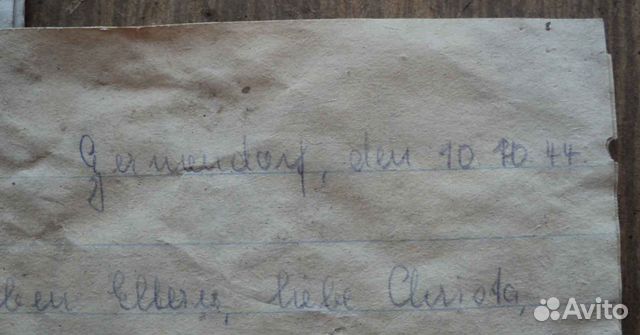 Germendorf, den 10.10.44.
ben Eltern, liebe Christa,
Avito